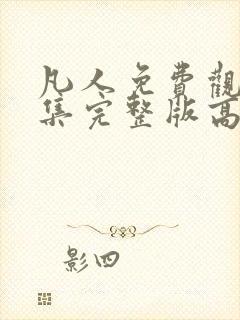 凡人免費觀
集完整版高
影四